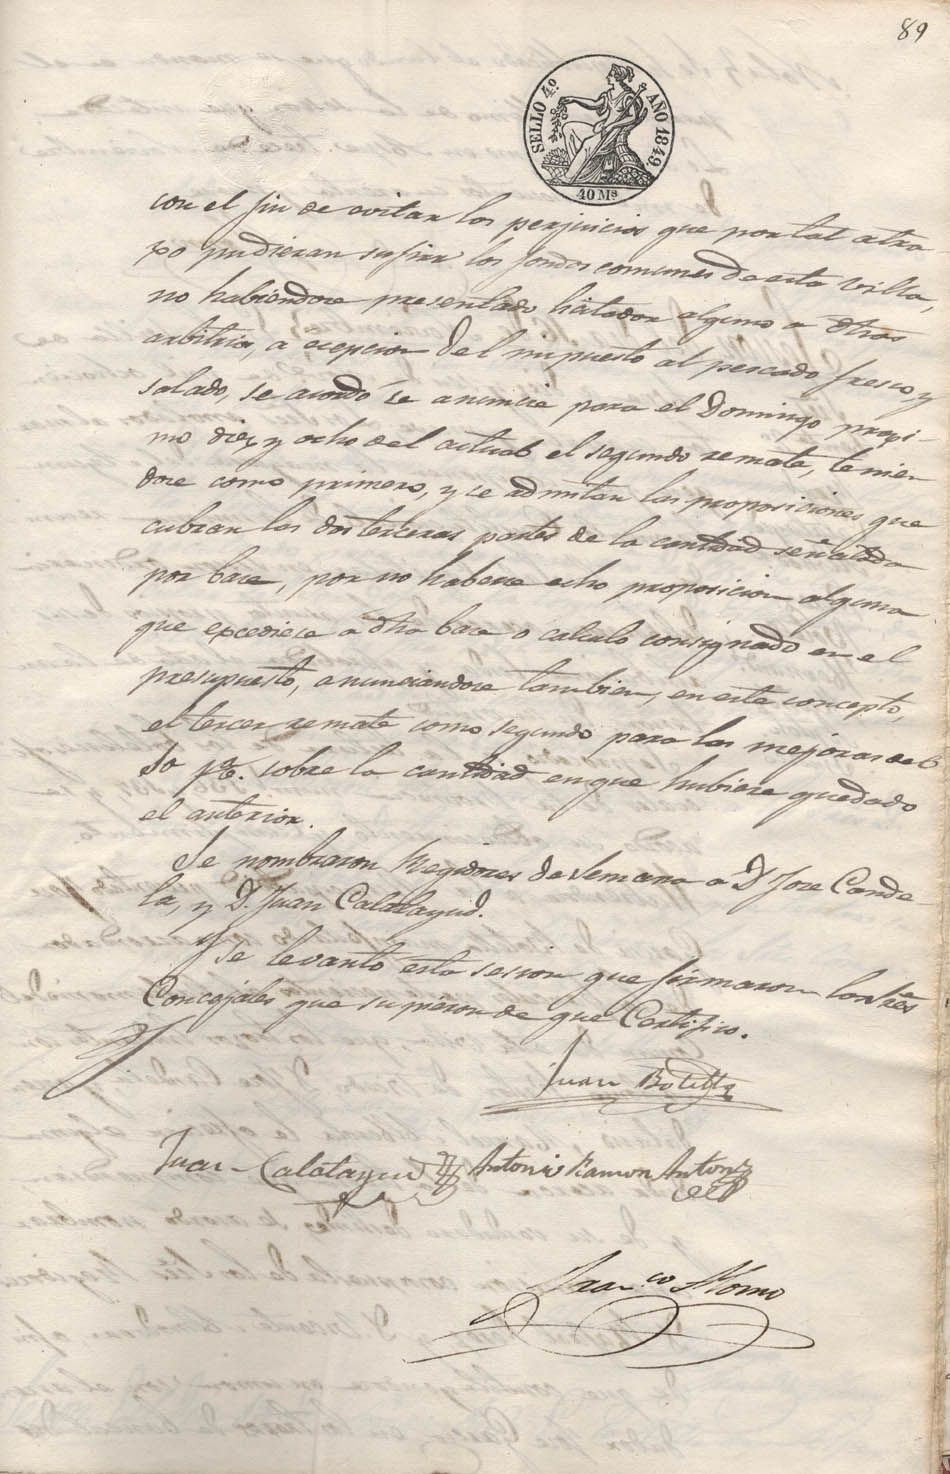 89
SELLO 4.º AÑO 1849.
40 Mˢ
con el fin de evitar los perjuicios que por tal atra-
so pudieran sufrir los fondos comunes de esta villa,
no habiendose presentado licitador alguno a otros
arbitrios, a ecepcion del impuesto al pescado fresco y
salado, se acordó se anuncie para el Domingo proxi-
mo diez y ocho del actual el segundo remate, tenien-
dose como primero, y se admitan las proposiciones que
cubran las dos terceras partes de la cantidad señalada
por base, por no haberse echo proposicion alguna
que excediese a dha base o calculo consignado en el
presupuesto, anunciandose tambien, en este concepto,
el tercer remate como segundo para las mejoras del
10 p%. sobre la cantidad en que hubiere quedado
el anterior.
Se nombraron Regidores de Semana a Dⁿ Jose Cande-
la, y D. Juan Calatayud.
Y se levantó esta sesion que firmaron los Sres
Concejales que supieron de que Certifico.
Juan Botella
Juan Calatayud Antonio Ramon Antonio
Franᶜᵒ